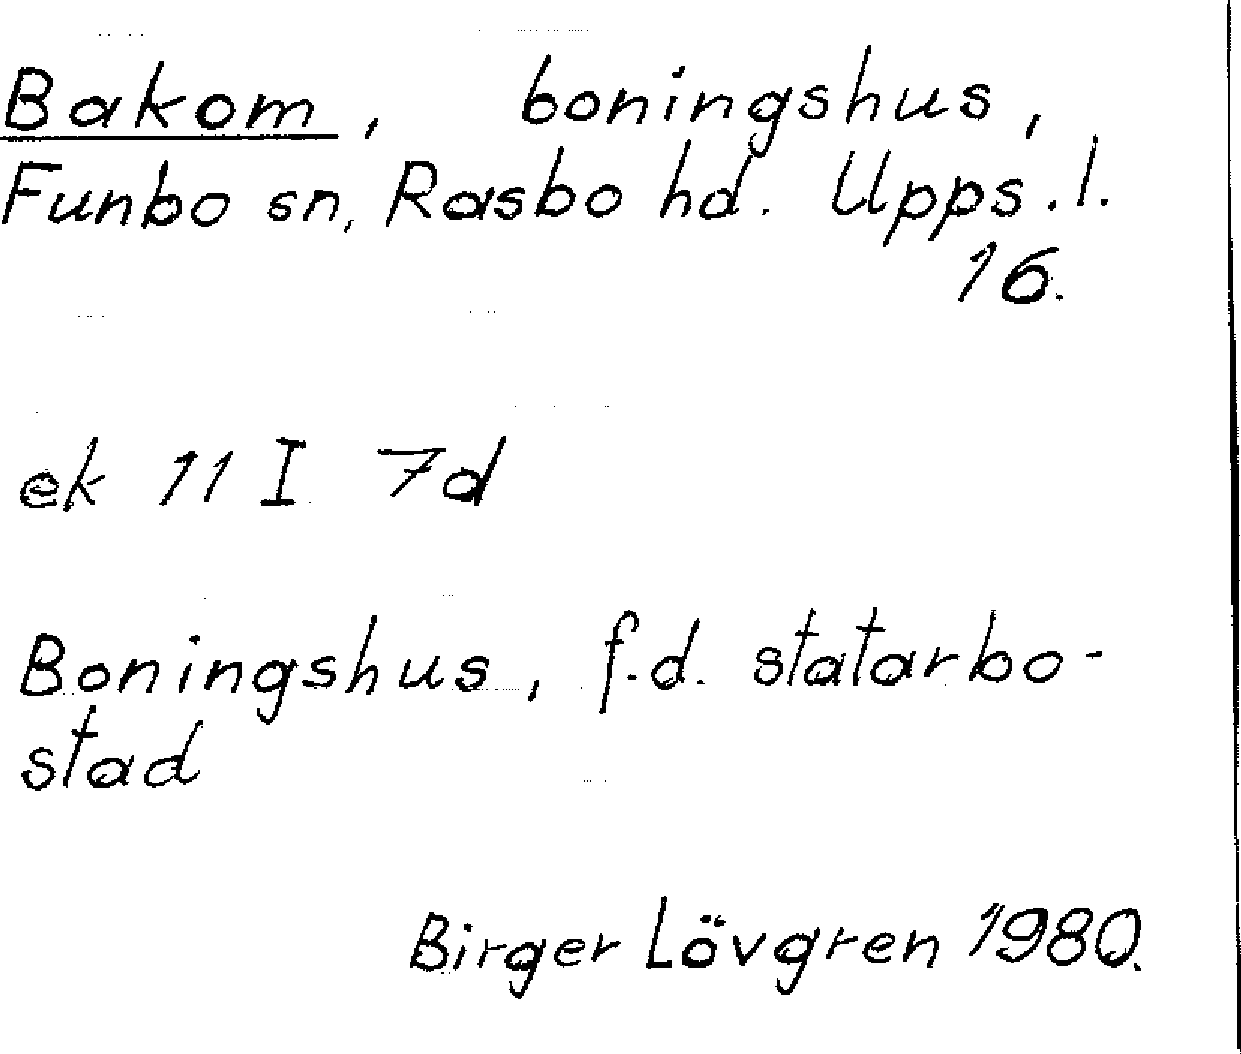 Bakom, boningshus,
Funbo sn, Rasbo hd. Upps. l.
16.
ek 11 I 7d
Boningshus, f.d. statarbo-
stad
Birger Lövgren 1980.